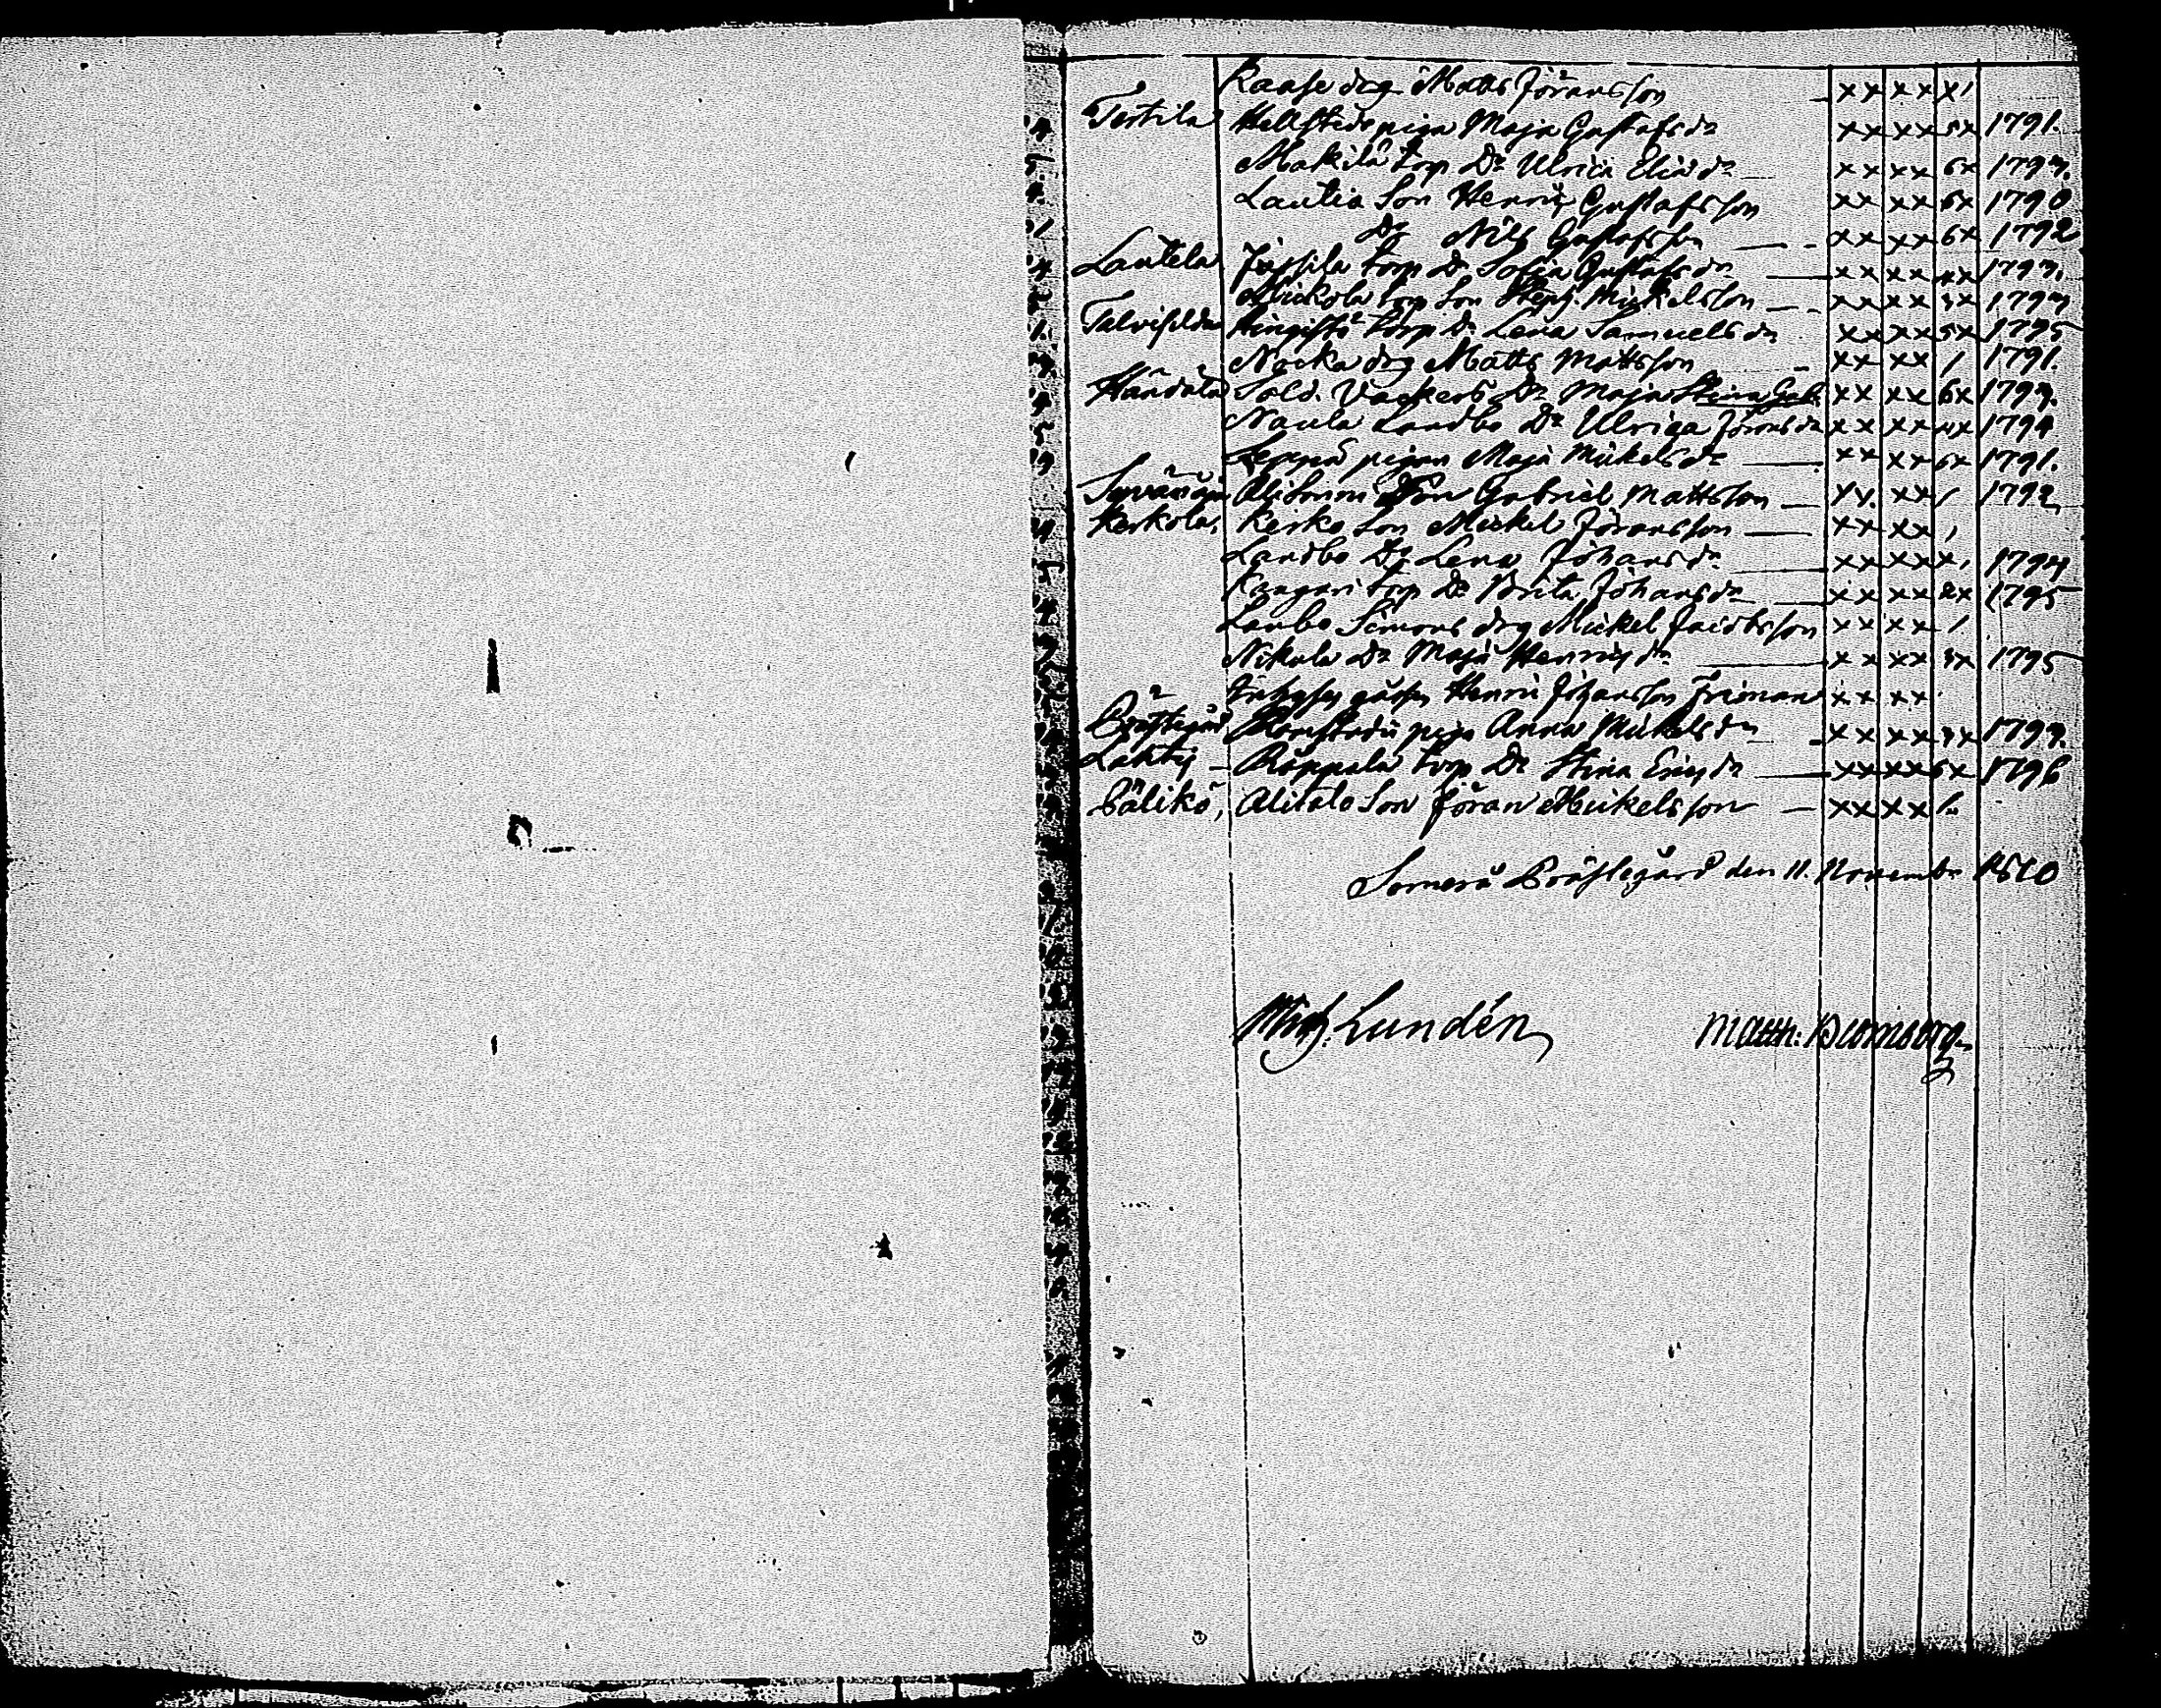 Kaase drg Matts Jöransson xx xx x/
Tertila Hellstedt piga Maja Gustafsdr xx xx 5x 1791.
Makila torp Dr Ulrica Eliædr xx xx 6x 1793.
Lautia Son Henric Gustafsson xx xx 6x 1790
Do Nils Gustafsson xx xx 6x 1792
Lautela Jussila torp Dr Sofia Gustafsdr xx xx xx 1793.
Nickola torp Son Steph. Mickelsson xx xx 3x 1793
Talvisilda torp Dr Lena Samuelsdr xx xx 5x 1795
Nocka drg Matts Mattsson xx xx / 1791.
Händälä Sold. Vackers Dr Maja Stina Gab. xx xx 6x 1793.
Naula Landbo Dr Ulrica Jöransdr xx xx 4x 1794
Seppä pigan Maja Mickelsdr xx xx 6x 1791.
Syvänoja Alitomi Son Gabriel Mattsson xx xx / 1792
Kerkola, Kerko Son Mickel Jöransson xx xx /
Landbo Dr Lena Johansdr xx xx x, 1794
Kangari torp Dr Brita Johansdr xx xx 2x 1795
Lanbo Simons drg Mickel Jacobsson xx xx /
Nikula Dr Maja Henricsdr xx xx 3x 1795
Henric Johansson Friman xx xx
Prästegård piga Anna Mickelsdr xx xx 3x 1793.
Lahty Räppala torp Dr Stina Ericsdr xx xx 6x 1796
Pälikö, Alitalo Son Jöran Mickelsson xx xx /.
Somero Prästegård den 11. Novembr 1810
Mich. Lundén Matth. Blomberg